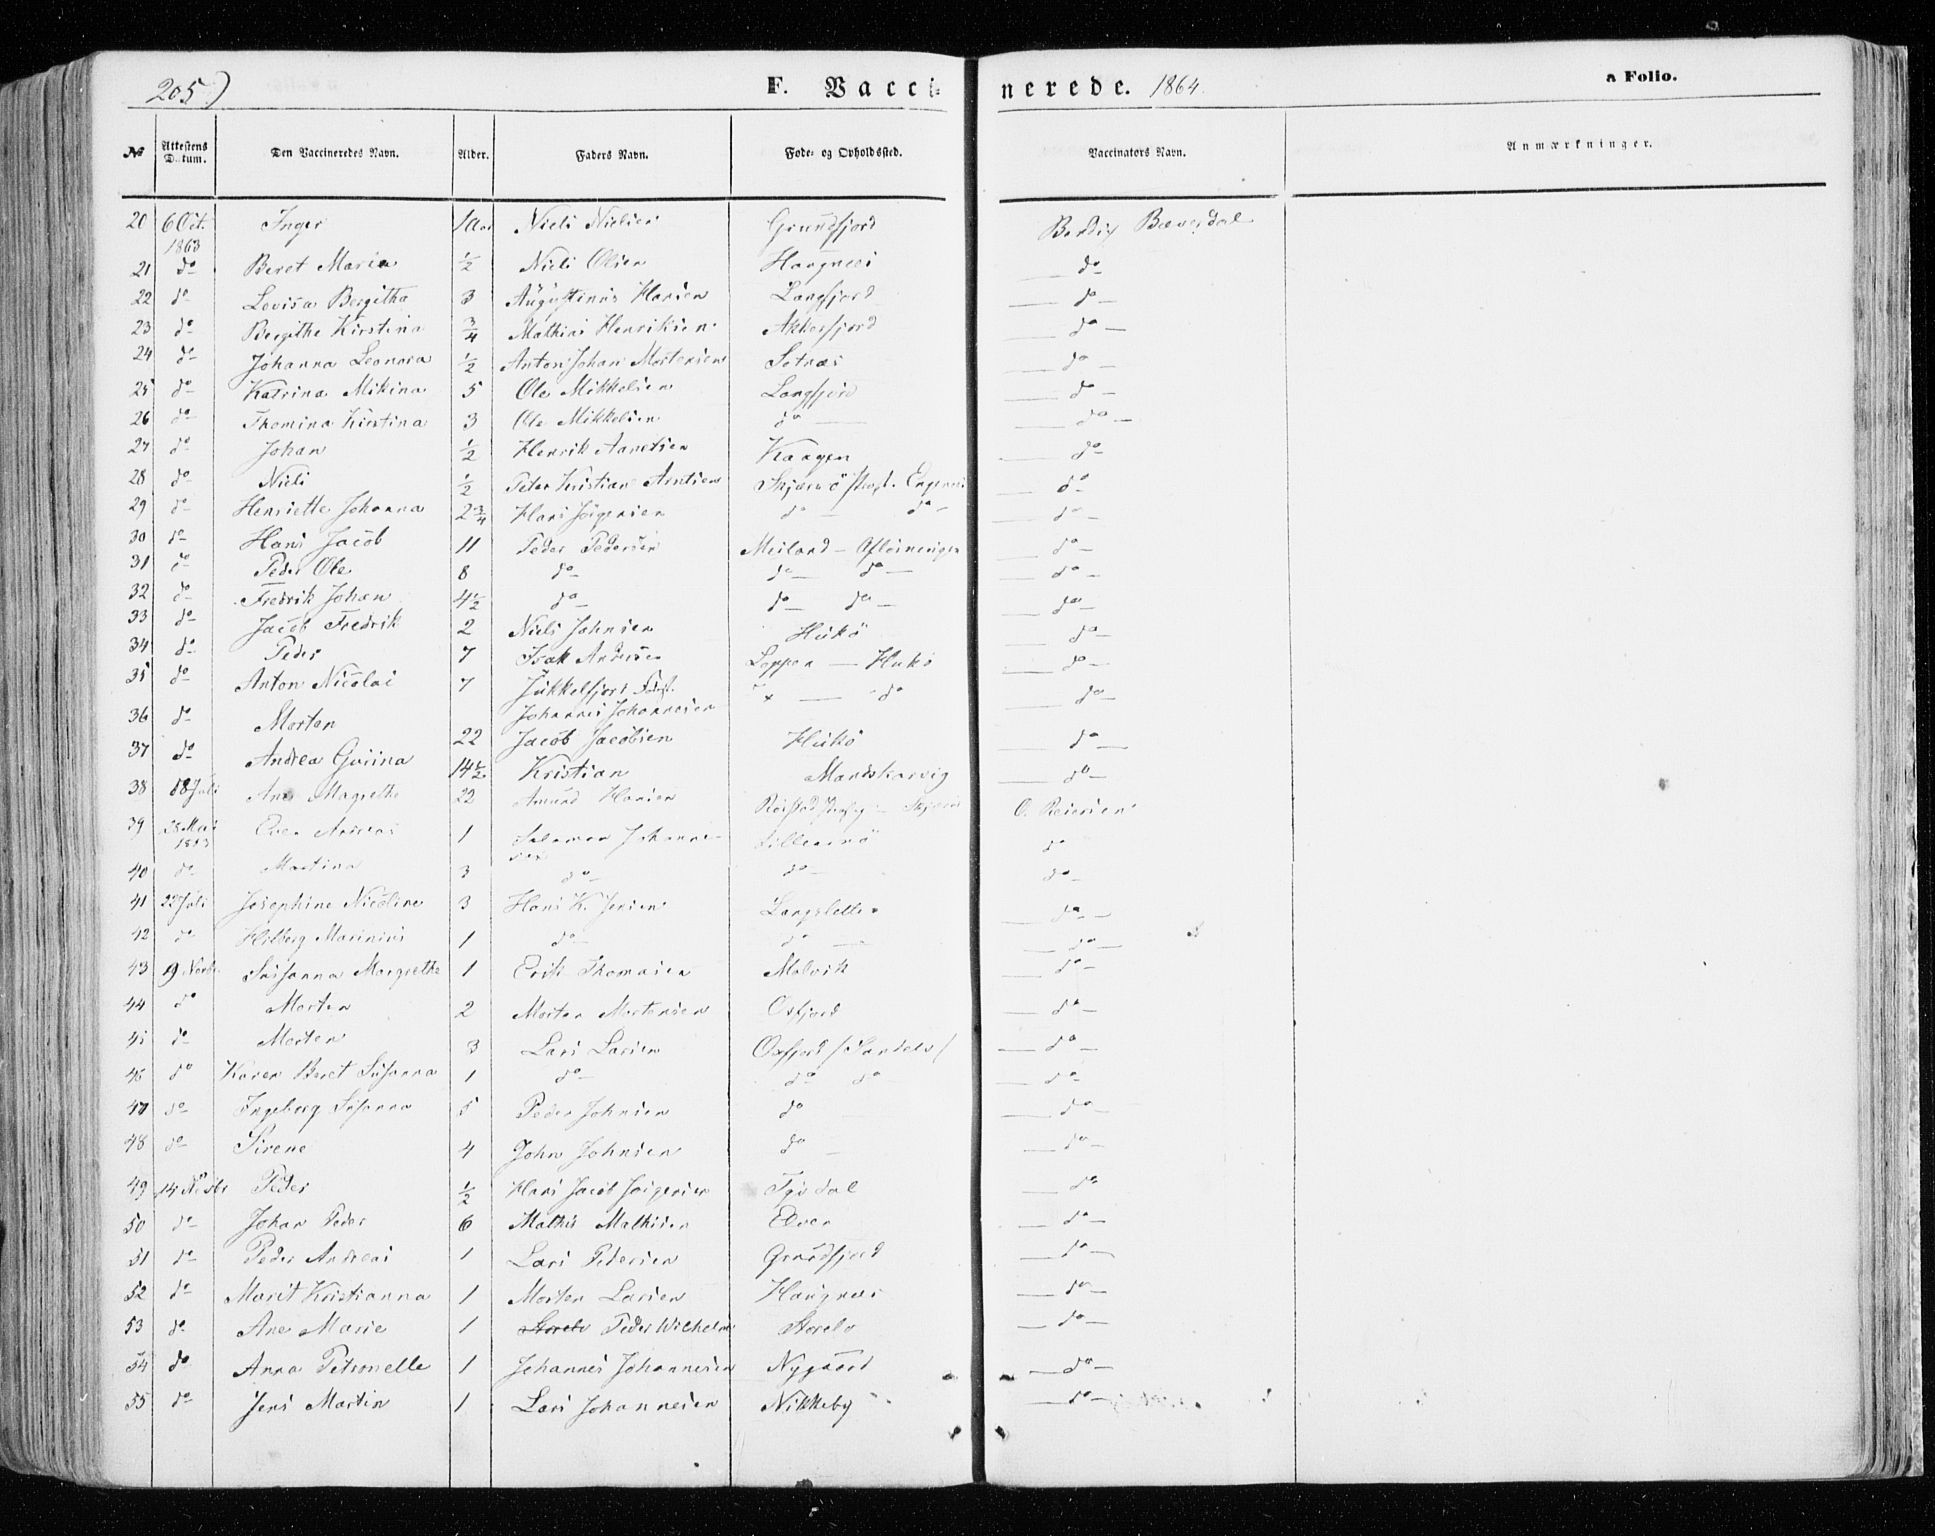 205)
F. Vaccinerede. 1864.
a Folio.
No Attestens Datum. Den Vaccineredes Navn. Alder. Faders Navn. Føde- og Opholdssted. Vaccinators Navn. Anmærkninger.
20 6 Oct. 1863 Inger 1 Aar Niels Nielsen Grundfjord Bendix Bæverdal
21 do Beret Maria 1/2 Niels Olsen Haugnæs do
22 do Lovisa Bergitha 3 Augustinus Hansen Langfjord do
23 do Bergithe Kirstina 3/4 Mathias Henriksen Akkarfjord do
24 do Johanna Leonora 1/2 Anton Johan Mortensen Sotnæs do
25 do Katrina Mikina 5 Ole Mikkelsen Langfjord do
26 do Thomina Kirstina 3 Ole Mikkelsen do do
27 do Johan 1/2 Henrik Aanetsen Kaagen do
28 do Niels 1/2 Peter Kristian Arntsen Skjærvö do
29 do Henriette Johanna 2 3/4 Hans Jörgensen do do do
30 do Hans Jacob 11 Peder Pedersen Meiland — do
31 do Peder Ole 8 do do do do
32 do Fredrik Johan 4 1/2 do do do do
33 do Jacob Fredrik 2 Niels Johnsen Hukö do
34 do Peder 7 Isak Andersen Loppen — Hukö do
35 do Anton Nicolai 7 Jökkelfjord
Johannes Johannesen do do
36 do Morten 22 Jacob Jacobsen Hukö do
37 do Andrea Guriina 14 1/2 Kristian Mandskarvig do
38 18 Juli Ane Magrethe 22 Amund Hansen O. Reiersen
39 Andreas 1 Salamon Johannesen do
40 do Martina 3 do do do
41 22 Juli Josephine Nicoline 3 Hans K. Jensen Langslette do
42 do Hilberg Marinius 1 do do do
43 9 Novbr. Susanna Margrethe 1 Erik Thomasen Molvik do
44 do Morten 2 Morten Mortensen Oxfjord do
45 do Morten 3 Lars Larsen Oxfjord /Sandelv/ do
46 do Karen Beret Susanna 1 do do do do
47 do Ingeberg Susanna 5 Peder Johnsen do do
48 do Sirene 4 John Johnsen do do
49 14 Novbr Peder 1/2 Hans Jacob Jörgensen do
50 do Johan Peder 6 Mathis Mathisen Elven do
51 do Peder Andreas 1 Lars Pedersen Grundfjord do
52 do Marit Kristianna 1 Morten Larsen Haugnæs do
53 do Ane Marie 1 Storelv Peder Wilhelm Storelv do
54 do Anna Petronelle 1 Johannes Johannesen Nygaard do
55 do Jens Martin 1 Lars Johannesen Nikkeby do